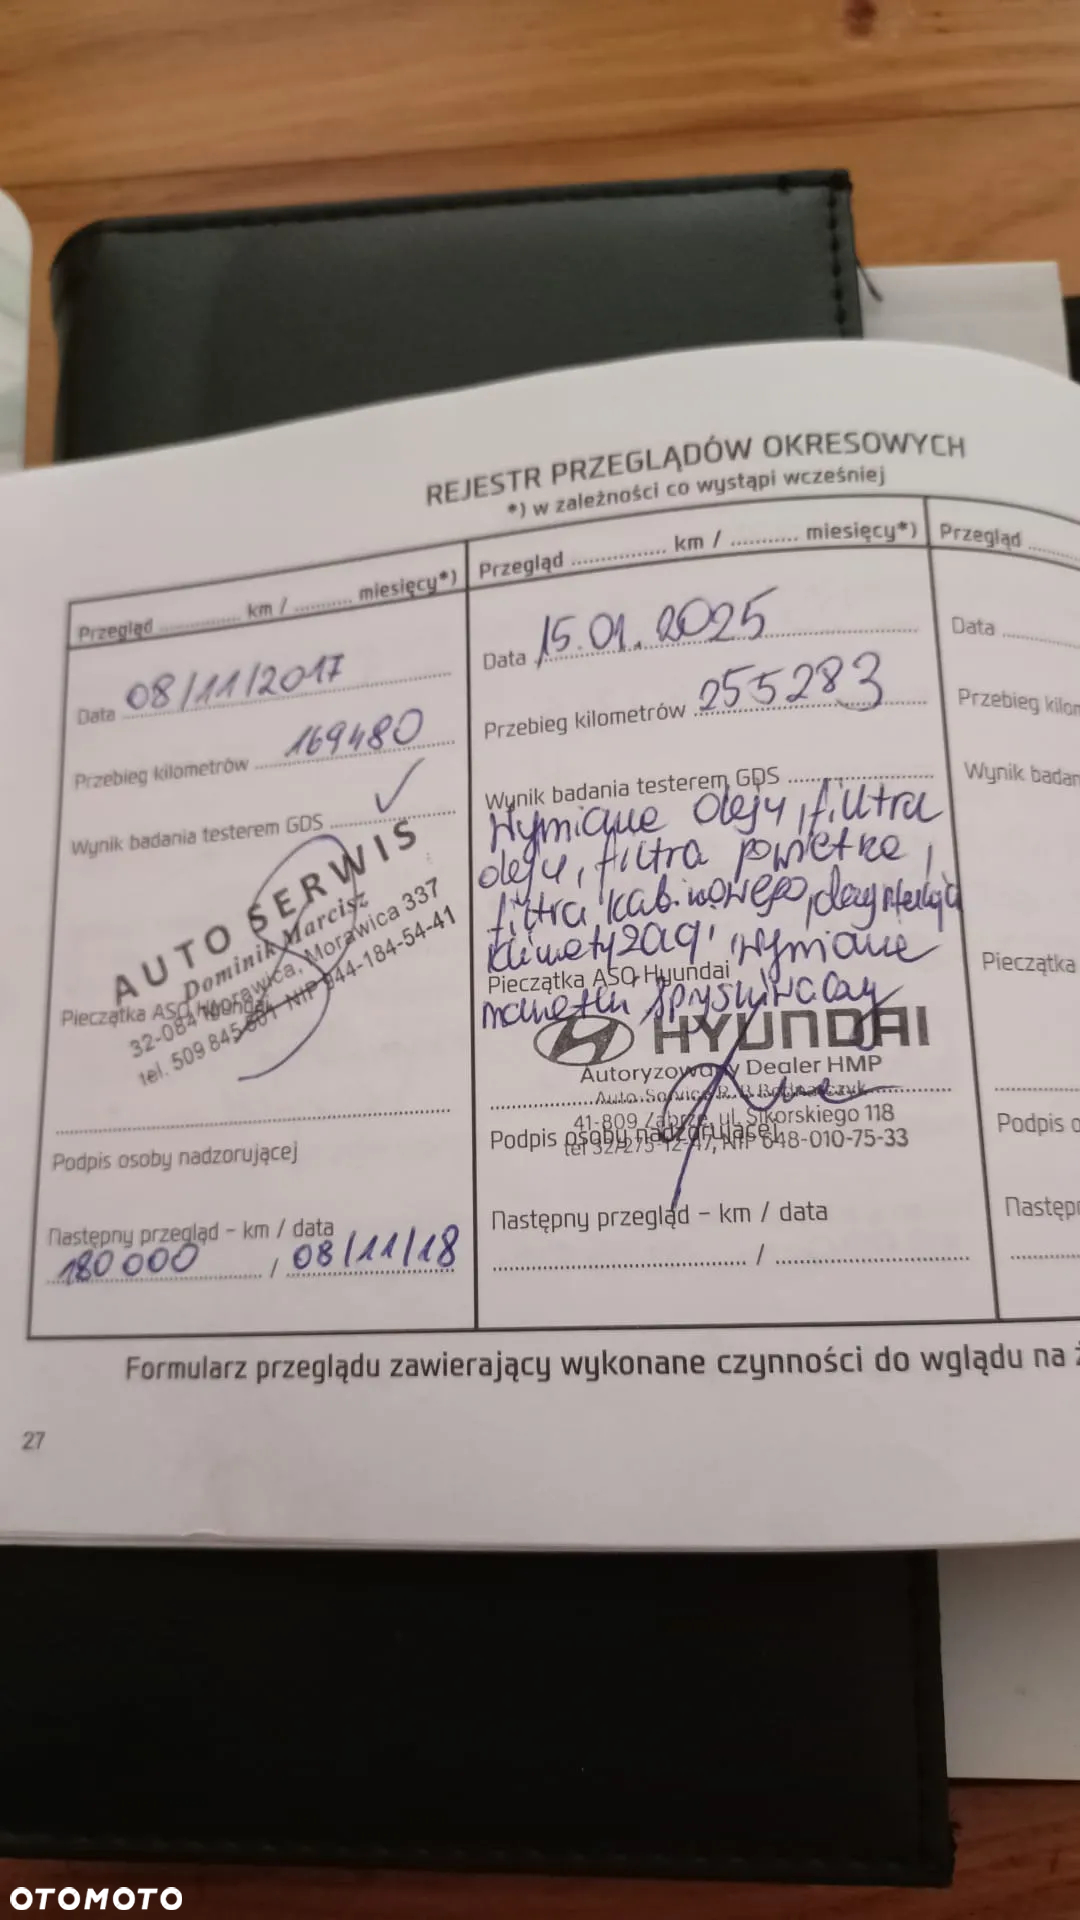 REJESTR PRZEGLĄDÓW OKRESOWYCH
*) w zależności co wystąpi wcześniej
Przegląd ............... km / ........... miesięcy*)
Data 08/11/2017
Przebieg kilometrów 169480
Wynik badania testerem GDS ✓
AUTO SERWIS
Dominik Marcisz
Morawica, Morawica 337
Pieczątka ASO Hyundai
32-084
tel. 509 845 801 NIP 944-184-54-41
Podpis osoby nadzorującej
Następny przegląd – km / data
180 000 / 08/11/18
Przegląd ............... km / ........... miesięcy*)
Data 15.01.2025
Przebieg kilometrów 255283
Wynik badania testerem GDS
Wymiane oleju, filtra
oleju, filtra powietrza,
filtra kabinowego, dezynfekcja
klimatyzacji, wymiane
Pieczątka ASO Hyundai
HYUNDAI
Autoryzowany Dealer HMP
Auto Service R. B. Bednarczyk
41-809 Zabrze, ul. Sikorskiego 118
Podpis osoby nadzorującej
tel 32/275-12-47, NIP 648-010-75-33
Następny przegląd – km / data
............... / ...............
Przegląd
Data
Przebieg kilom
Wynik badan
Pieczątka
Podpis o
Następn
Formularz przeglądu zawierający wykonane czynności do wglądu na ż
27
OTOMOTO